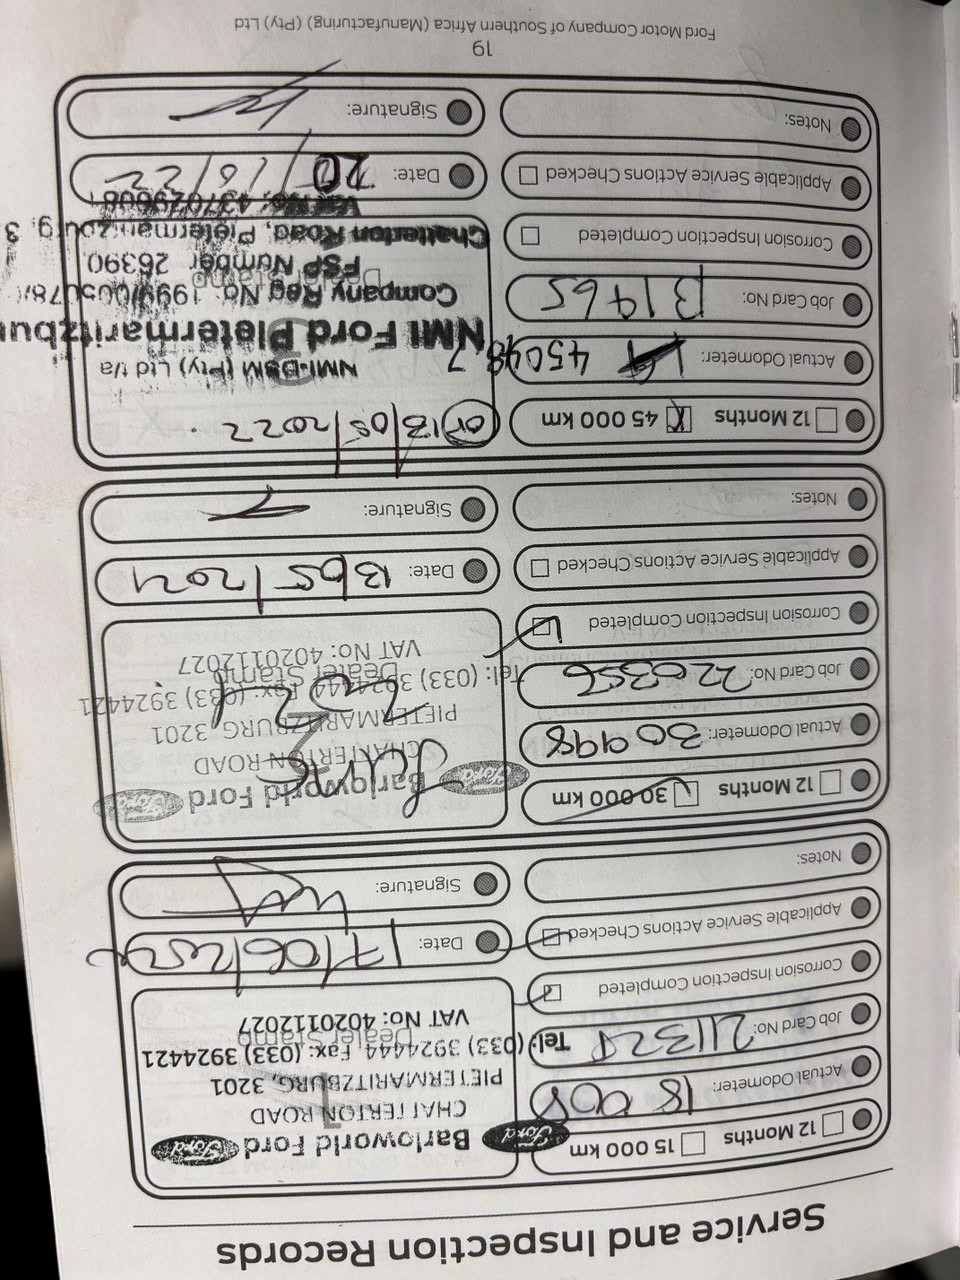 Service and Inspection Records
12 Months 15 000 km
Actual Odometer: 18 008
Job Card No: 211328
Corrosion Inspection Completed
Applicable Service Actions Checked
Notes:
Barloworld Ford
CHATTERTON ROAD
PIETERMARITZBURG, 3201
Tel: (033) 3924444 Fax: (033) 3924421
Dealer Stamp
VAT No: 4020112027
1
Date: 17/06/2020
Signature:
12 Months 30 000 km
Actual Odometer: 30998
Job Card No: 220356
Corrosion Inspection Completed
Applicable Service Actions Checked
Notes:
Barloworld Ford
CHATTERTON ROAD
PIETERMARITZBURG, 3201
Tel: (033) 3924444 Fax: (033) 3924421
Dealer Stamp
VAT No: 4020112027
2
Date: 13/05/2021
Signature:
12 Months 45 000 km
Actual Odometer: 45048.7
Job Card No: 31465
Corrosion Inspection Completed
Applicable Service Actions Checked
Notes:
or 13/05/2022
NMI-DSM (Pty) Ltd t/a
NMI Ford Pietermaritzbur
3
Company Reg No. 1999/005078/0
Dealer Stamp
FSP Number 26390
Chatterton Road, Pietermaritzburg, 3
Date: 20/10/22
Signature:
19
Ford Motor Company of Southern Africa (Manufacturing) (Pty) Ltd